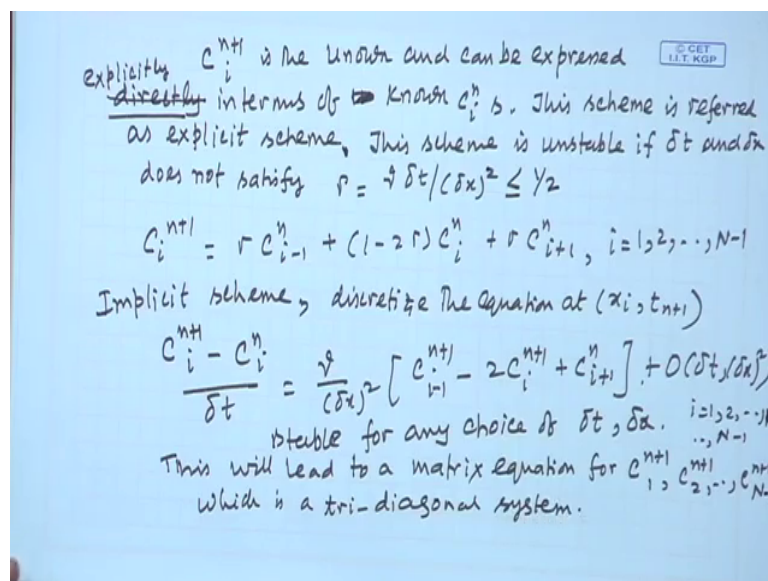 explicitly C_i^{n+1} is the unown and can be expressed
© CET
I.I.T. KGP
directly in terms of known C_i^n s. This scheme is referred
as explicit scheme, This scheme is unstable if δt and δx
does not satisfy r = ϑ δt/(δx)^2 ≤ 1/2
C_i^{n+1} = r C_{i-1}^n + (1-2r) C_i^n + r C_{i+1}^n, i=1,2,..,N-1
Implicit scheme, discretize the equation at (x_i, t_{n+1})
(C_i^{n+1} - C_i^n)/δt = ϑ/(δx)^2 [C_{i-1}^{n+1} - 2C_i^{n+1} + C_{i+1}^n] + O(δt,(δx)^2)
stable for any choice of δt, δx. i=1,2,..
.., N-1
This will lead to a matrix equation for C_1^{n+1}, C_2^{n+1},.., C_{N-
which is a tri-diagonal system.